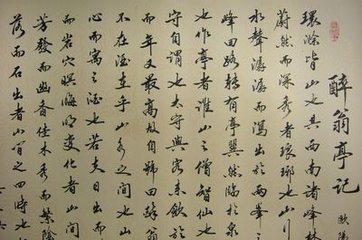 醉翁亭記
歐陽
環滁皆山也其西南諸峰林
蔚然而深秀者琅琊也山行
水聲潺潺而瀉出於兩峯之
峰回路轉有亭翼然臨於泉
也作亭者誰山之僧智仙也
守自謂也太守與客来飲於
而年又最高故自號曰醉翁
不在酒在乎山水之間也山
心而寓之酒也若夫日出而
而岩穴暝晦明變化者山
芳發而幽香佳木秀而繁陰
落而石出者山間之四時也